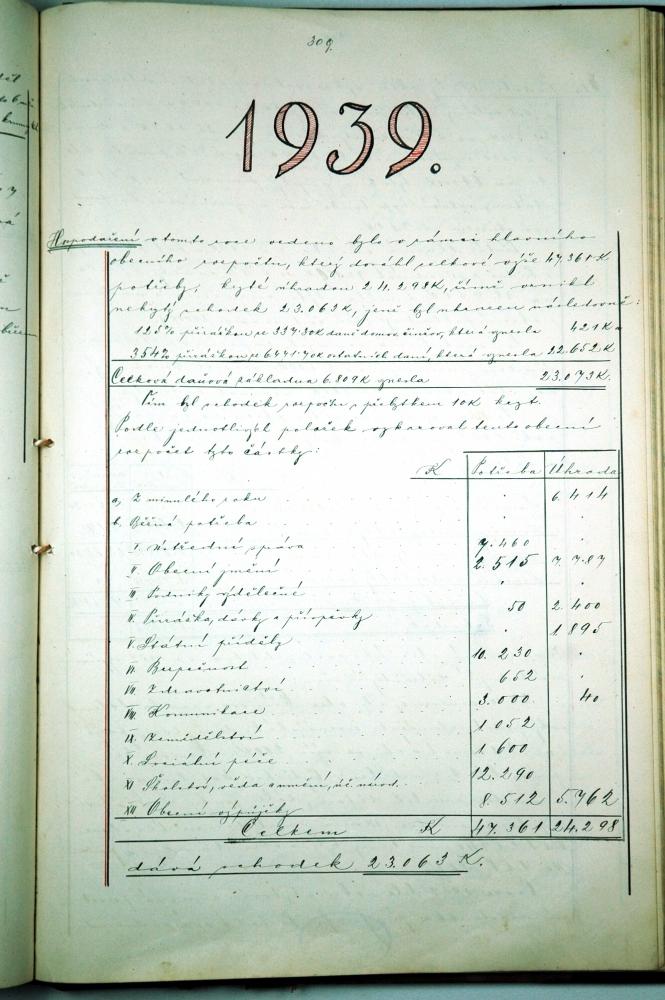 309.
1939.
Hospodaření v tomto roce vedeno bylo v rámci hlavního
obecního rozpočtu, který dosáhl celkové výše 47.361 K
potřeby, kryté úhradou 24.298 K, čímž vznikl
nekrytý schodek 23.063 K, jenž byl uhrazen následovně:
125% přirážkou ze 337.30 K daní domov. činžov., která vynesla 421 K a
354% přirážkou ze 6471.70 K ostatních daní, která vynesla 22.652 K
Celková daňová základna 6.809 K vynesla 23.073 K.
Tím byl schodek rozpočtu s přebytkem 10 K kryt.
Podle jednotlivých položek vykazoval tento obecní
rozpočet tyto částky:
K Potřeba Úhrada
a, Z minulého roku . 6.414
b. Běžná potřeba . .
I. Ústřední správa 7.460 .
II. Obecní jmění 2.515 7.787
III. Podniky výdělečné . .
IV. Přirážka, dávky a příspěvky 50 2.400
V. Státní příděly . 1.895
VI. Bezpečnost 10.230 .
VII. Zdravotnictví 652 .
VIII. Komunikace 3.000 40
IX. Zemědělství 1.052
X. Sociální péče 1.600
XI Školství, věda a umění, 12.290
XII Obecní výpůjčky 8.512 5.762
Celkem K 47.361 24.298
dává schodek 23.063 K.